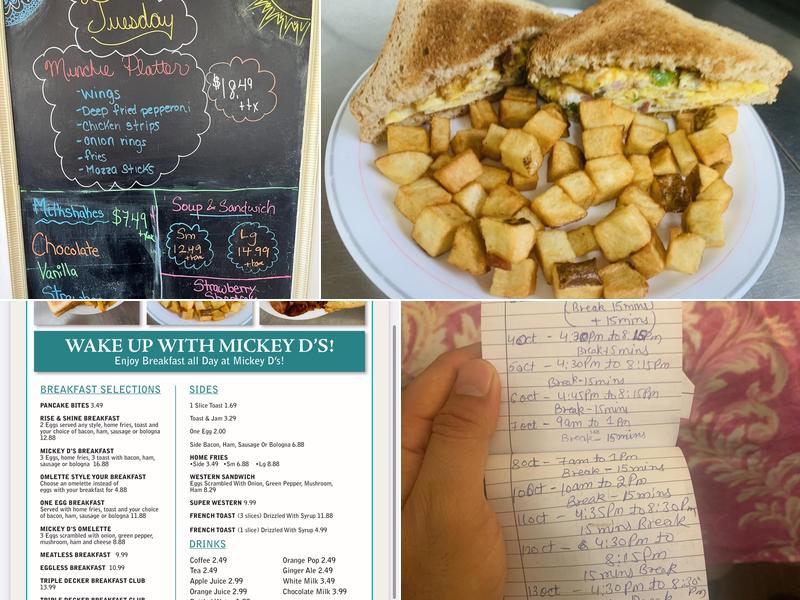 Tuesday
Munchie Platter
$18.49
++tx
-Wings
-Deep fried pepperoni
-Chicken strips
-onion rings
-fries
-Mozza Sticks
Milkshakes $7.49
+tax
Chocolate
Vanilla
Soup & Sandwich
Sm
12.49
+tax
Lg
14.99
+tax
Strawberry
WAKE UP WITH MICKEY D'S!
Enjoy Breakfast all Day at Mickey D's!
BREAKFAST SELECTIONS
PANCAKE BITES 3.49
RISE & SHINE BREAKFAST
2 Eggs served any style, home fries, toast and
your choice of bacon, ham, sausage or bologna
12.88
MICKEY D'S BREAKFAST
3 Eggs, home fries, 3 toast with bacon, ham,
sausage or bologna 16.88
OMLETTE STYLE YOUR BREAKFAST
Choose an omelette instead of
eggs with your breakfast for 4.88
ONE EGG BREAKFAST
Served with home fries, toast and your choice
of bacon, ham, sausage or bologna 11.88
MICKEY D'S OMELETTE
3 Eggs scrambled with onion, green pepper,
mushroom, ham and cheese 8.88
MEATLESS BREAKFAST 9.99
EGGLESS BREAKFAST 10.99
TRIPLE DECKER BREAKFAST CLUB
13.99
SIDES
1 Slice Toast 1.69
Toast & Jam 3.29
One Egg 2.00
Side Bacon, Ham, Sausage Or Bologna 6.88
HOME FRIES
•Side 3.49 •Sm 6.88 •Lg 8.88
WESTERN SANDWICH
Eggs Scrambled With Onion, Green Pepper, Mushroom,
Ham 8.29
SUPER WESTERN 9.99
FRENCH TOAST (3 slices) Drizzled With Syrup 11.88
FRENCH TOAST (1 slice) Drizzled With Syrup 4.99
DRINKS
Coffee 2.49
Tea 2.49
Apple Juice 2.99
Orange Juice 2.99
Orange Pop 2.49
Ginger Ale 2.49
White Milk 3.49
Chocolate Milk 3.99
(Break 15mins)
+ 15mins
4oct - 4:30pm to 8:15pm
Break 15mins
5oct - 4:30pm to 8:15pm
Break-15mins
6oct - 4:45pm to 8:15pm
Break-15mins
7oct - 9am to 1pm
Break-15mins
8oct - 7am to 1pm
Break - 15mins
10oct - 10am to 2pm
Break-15mins
11oct - 4:35pm to 8:30pm
15mins Break
12oct - 4:30pm to
8:15pm
15mins Break
13oct - 4:30pm to 8:30
pm